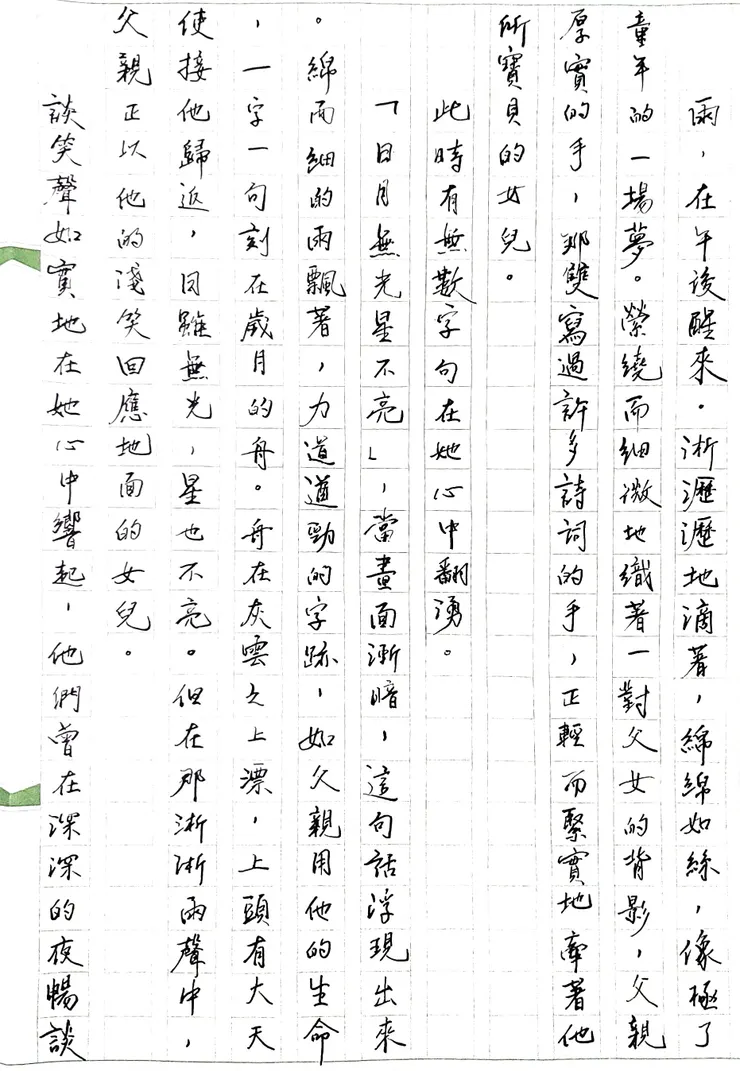 雨，在午後醒來。淅瀝瀝地滴著，綿綿如絲，像極了
童年的一場夢。縈繞而細微地織著一對父女的背影，父親
厚實的手，那雙寫過許多詩詞的手，正輕而緊實地牽著他
所寶貝的女兒。
此時有無數字句在她心中翻湧。
「日月無光星不亮」，當畫面漸暗，這句話浮現出來
。綿而細的雨飄著，力道遒勁的字跡，如父親用他的生命
，一字一句刻在歲月的舟。舟在灰雲之上漂，上頭有大天
使接他歸返，日雖無光，星也不亮。但在那淅淅雨聲中，
父親正以他的淺笑回應地面的女兒。
談笑聲如實地在她心中響起，他們曾在深深的夜暢談